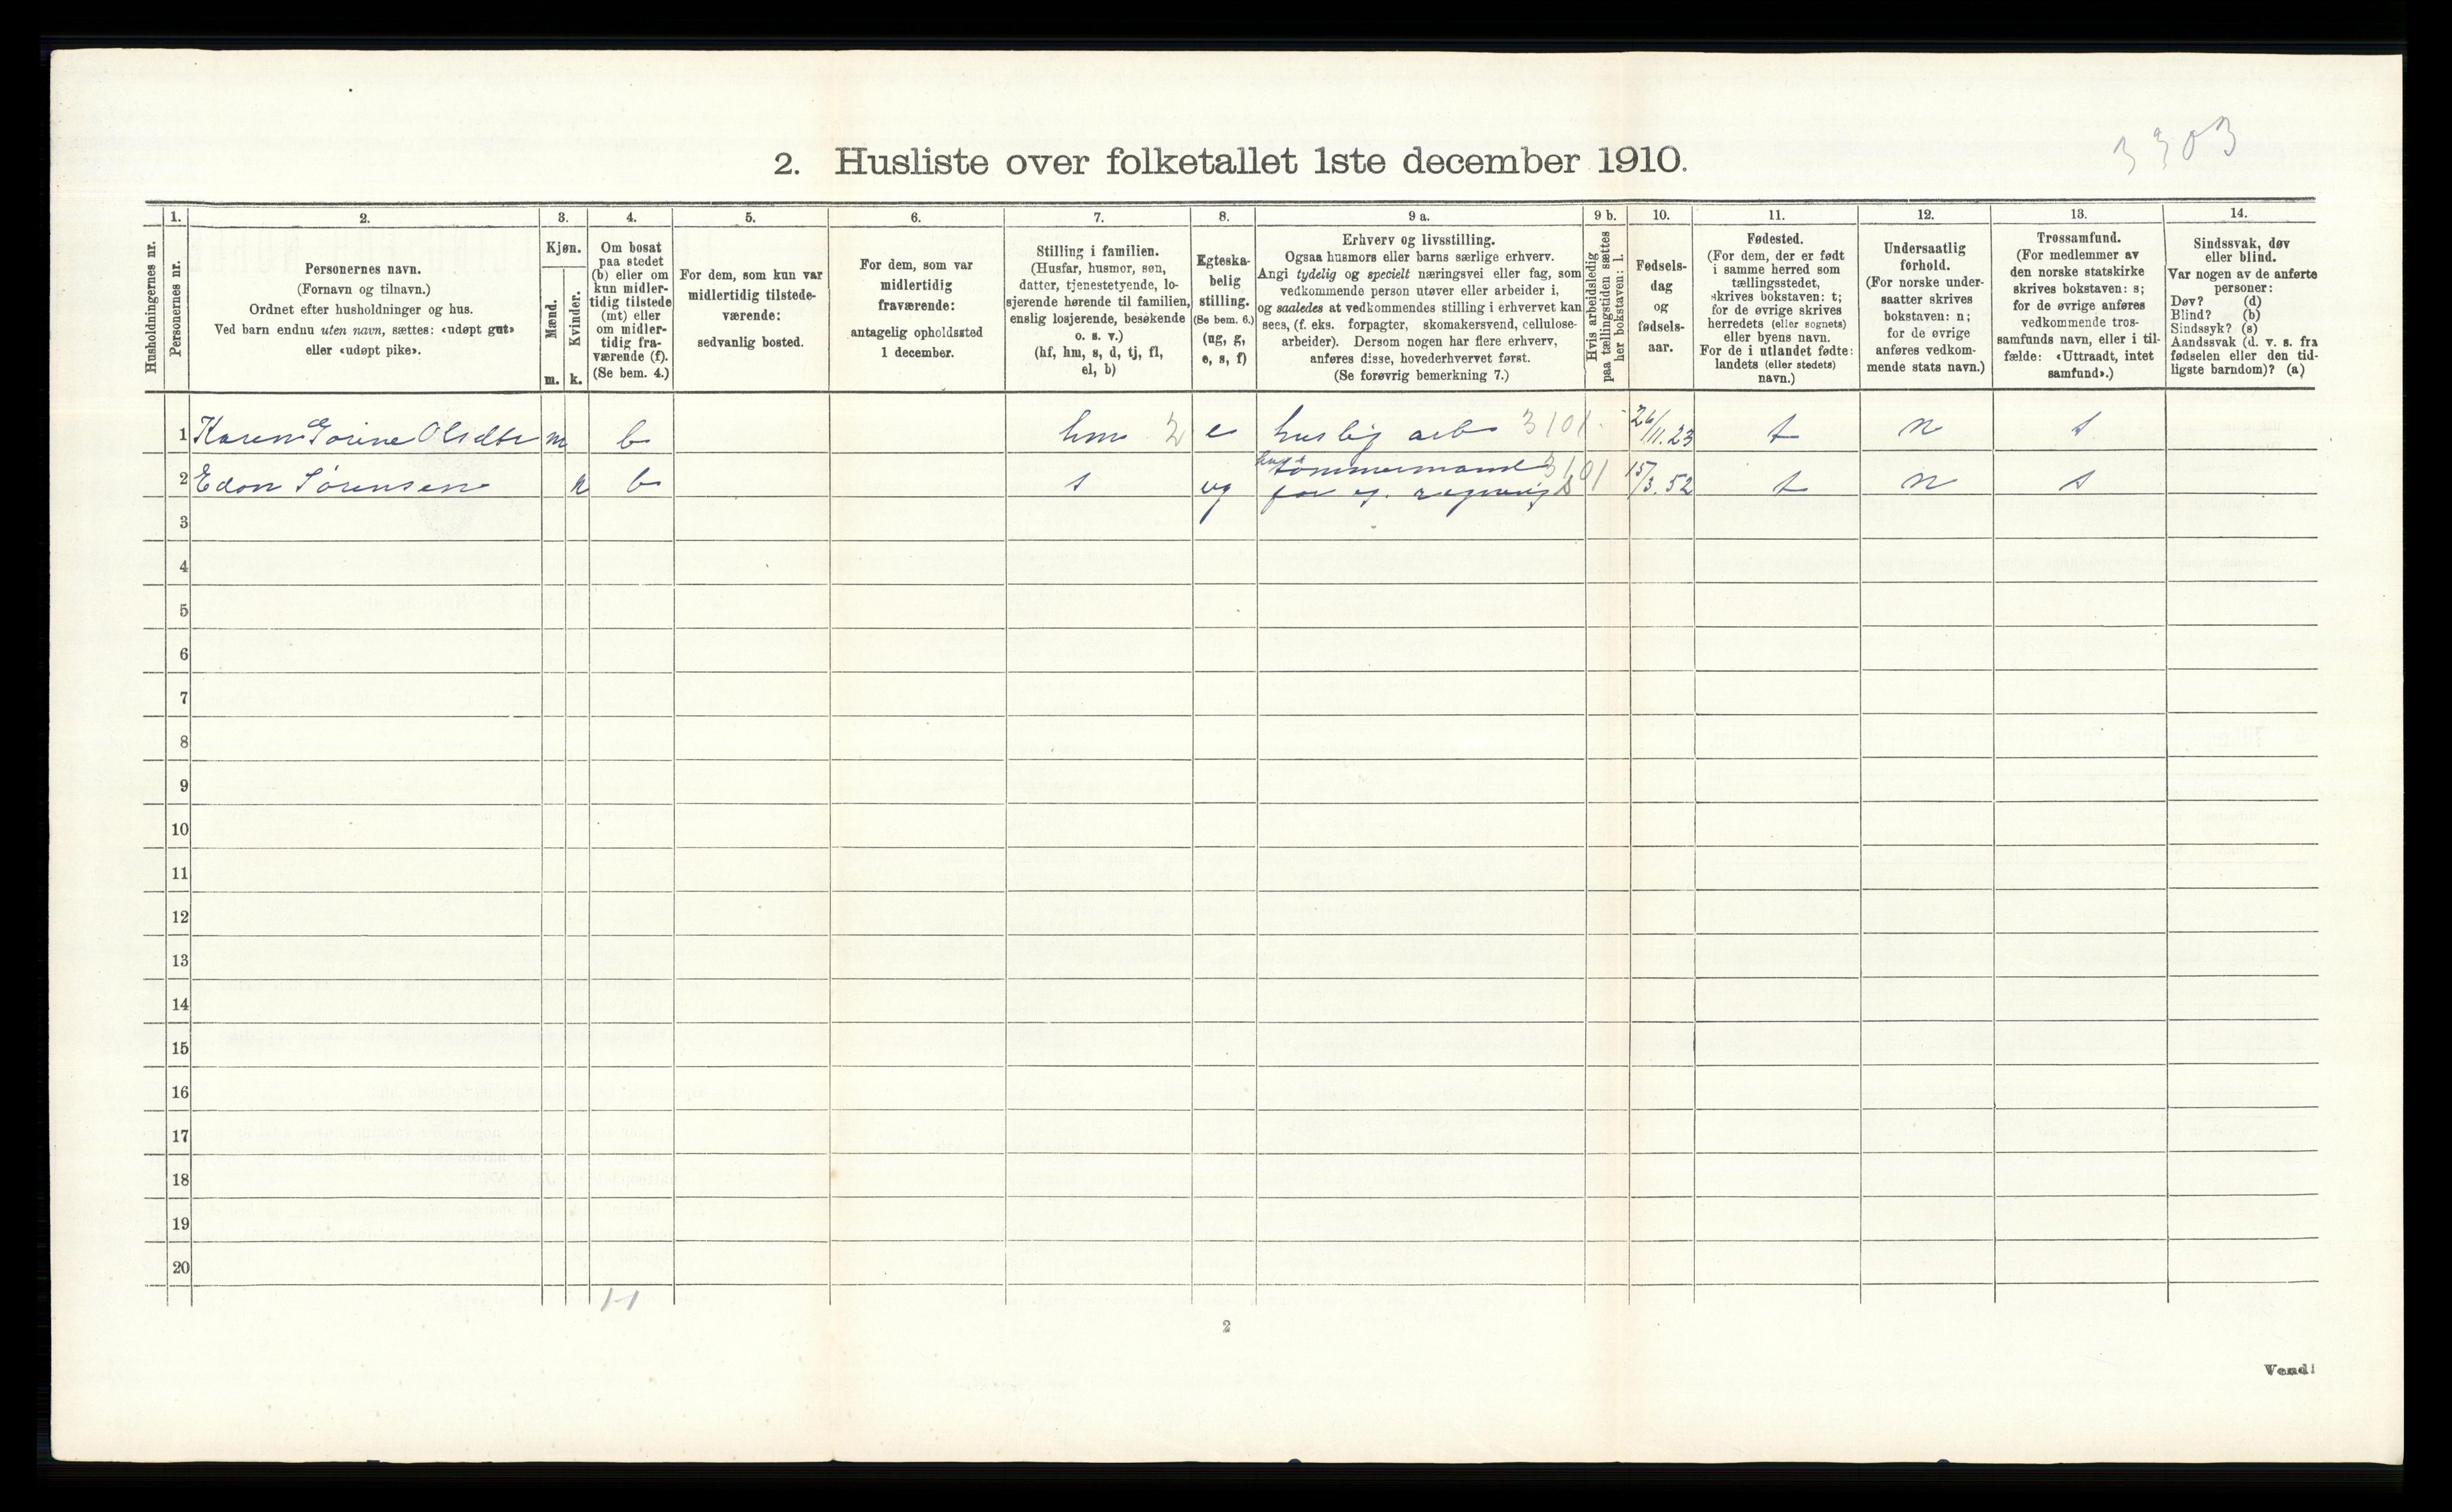 3303
2. Husliste over folketallet 1ste december 1910.
Husholdningernes nr.
1.
Personernes nr.
2.
Personernes navn.
(Fornavn og tilnavn.)
Ordnet efter husholdninger og hus.
Ved barn endnu uten navn, sættes: «udøpt gut»
eller «udøpt pike».
3.
Kjøn.
Mænd.
Kvinder.
m. k.
4.
Om bosat
paa stedet
(b) eller om
kun midler-
tidig tilstede
(mt) eller
om midler-
tidig fra-
værende (f).
(Se bem. 4.)
5.
For dem, som kun var
midlertidig tilstede-
værende:
sedvanlig bosted.
6.
For dem, som var
midlertidig
fraværende:
antagelig opholdssted
1 december.
7.
Stilling i familien.
(Husfar, husmor, søn,
datter, tjenestetyende, lo-
sjerende hørende til familien,
enslig losjerende, besøkende
o. s. v.)
(hf, hm, s, d, tj, fl,
el, b)
8.
Egteska-
belig
stilling.
(Se bem. 6.)
(ug, g,
e, s, f)
9 a.
Erhverv og livsstilling.
Ogsaa husmors eller barns særlige erhverv.
Angi tydelig og specielt næringsvei eller fag, som
vedkommende person utøver eller arbeider i,
og saaledes at vedkommendes stilling i erhvervet kan
sees, (f. eks. forpagter, skomakersvend, cellulose-
arbeider). Dersom nogen har flere erhverv,
anføres disse, hovederhvervet først.
(Se forøvrig bemerkning 7.)
9 b.
Hvis arbeidsledig
paa tællingstiden sættes
her bokstaven: l.
10.
Fødsels-
dag
og
fødsels-
aar.
11.
Fødested.
(For dem, der er født
i samme herred som
tællingsstedet,
skrives bokstaven: t;
for de øvrige skrives
herredets (eller sognets)
eller byens navn.
For de i utlandet fødte:
landets (eller stedets)
navn.)
12.
Undersaatlig
forhold.
(For norske under-
saatter skrives
bokstaven: n;
for de øvrige
anføres vedkom-
mende stats navn.)
13.
Trossamfund.
(For medlemmer av
den norske statskirke
skrives bokstaven: s;
for de øvrige anføres
vedkommende tros-
samfunds navn, eller i til-
fælde: «Uttraadt, intet
samfund».)
14.
Sindssvak, døv
eller blind.
Var nogen av de anførte
personer:
Døv? (d)
Blind? (b)
Sindssyk? (s)
Aandssvak (d. v. s. fra
fødselen eller den tid-
ligste barndom)? (a)
1 Karen Gorine Olsdtr m b hm 2 e huslig arb 3101 26/11.23 t n s
2 Edon Sørensen k b s ug tømmermand for eg. regning 3101 15/3.52 t n s
3
4
5
6
7
8
9
10
11
12
13
14
15
16
17
18
19
20
1-1
2
Vend!